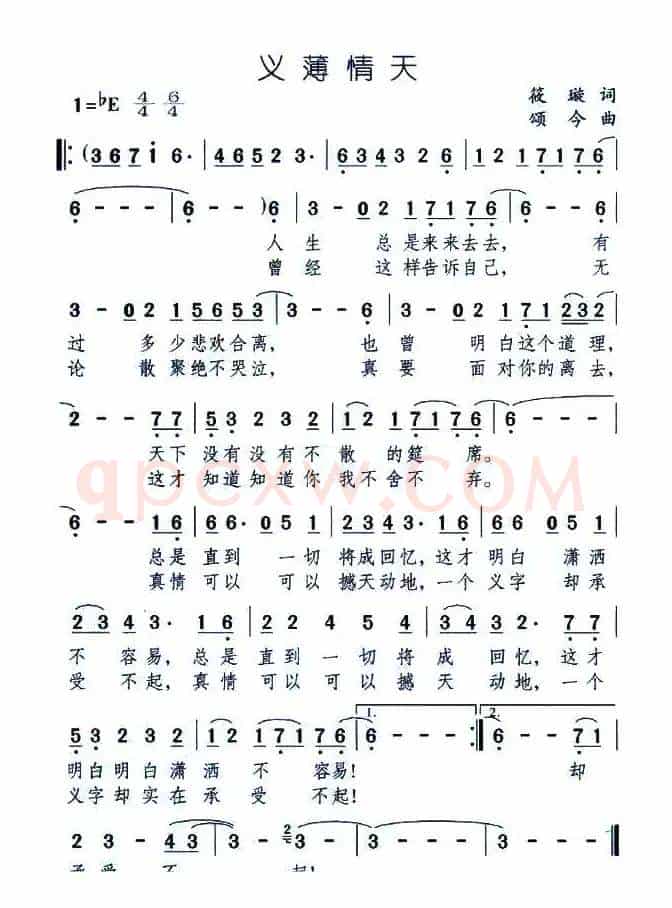 义薄情天
1=♭E 4/4 6/4
筱璇词
颂今曲
‖: (3 6 7 i 6· | 4 6 5 2 3· | 6 3 4 3 2 6 | 1 2 1 7 1 7 6 |
6 - - - | 6 - - )6 | 3 - 0 2 1 7 1 7 6 | 6 - - 6 |
人生 总是来来去去, 有
曾经 这样告诉自己, 无
3 - 0 2 1 5 6 5 3 | 3 - - 6 | 3 - 0 2 1 7 1 2 3 2 |
过 多少悲欢合离, 也曾 明白这个道理,
论 散聚绝不哭泣, 真要 面对你的离去,
2 - - 7 7 | 5 3 2 3 2 | 1 2 1 7 1 7 6 | 6 - - - |
天下 没有没有不散的筵席。
这才 知道知道你我不舍不弃。
qpcxw.COM
6 - - 1 6 | 6 6· 0 5 1 | 2 3 4 3· 1 6 | 6 6· 0 5 1 |
总是 直到 一切 将成回忆, 这才 明白 潇洒
真情 可以 可以 撼天动地, 一个 义字 却承
2 3 4 3· 1 6 | 2 2 4 5 4 | 3 4 3 2· 7 7 |
不容易, 总是 直到一切将成 回忆, 这才
受不起, 真情 可以可以撼天 动地, 一个
5 3 2 3 2 | 1 2 1 7 1 7 6 | 1. 6 - - - :‖ 2. 6 - - 7 1 |
明白明白潇洒 不 容易! 却
义字却实在承 受 不起!
2 3 - 4 3 | 3 - - 2 3 | 3 - - - | 3 - - - ‖